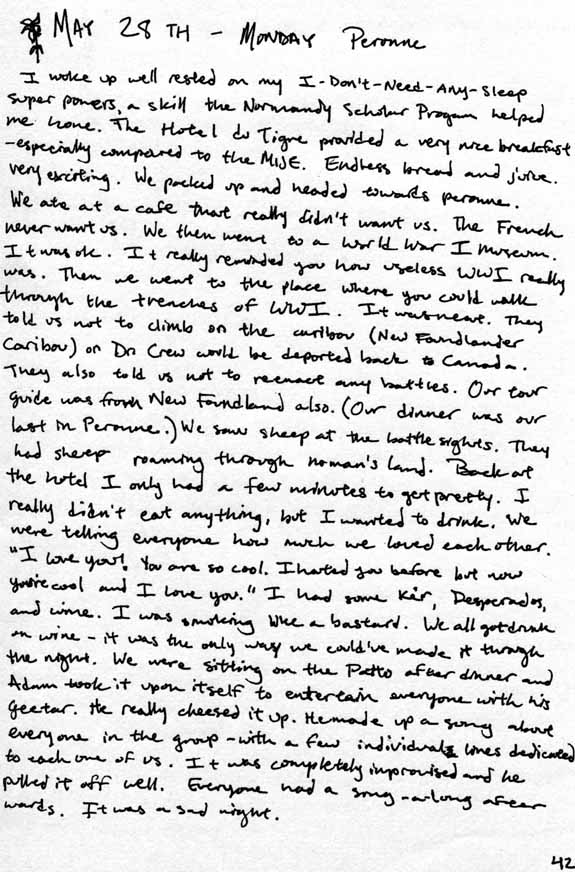 MAY 28TH - MONDAY Peronne
I woke up well rested on my I-Don't-Need-Any-Sleep
super powers, a skill the Normandy Scholar Progam helped
me hone. The Hotel du Tigre provided a very nice breakfast
-especially compared to the MIJE. Endless bread and juice.
very exciting. We packed up and headed towards peronne.
We ate at a cafe that really didn't want us. The French
never want us. We then went to a World War I Museum.
It was ok. It really reminded you how useless WWI really
was. Then we went to the place where you could walk
through the trenches of WWI. It was neat. They
told us not to climb on the caribou (New Foundlander
Caribou) or Dr Crew would be deported back to Canada.
They also told us not to reenact any battles. Our tour
guide was from New Foundland also. (Our dinner was our
last in Peronne.) We saw sheep at the battle sights. They
had sheep roaming through noman's land. Back at
the hotel I only had a few minutes to get pretty. I
really didn't eat anything, but I wanted to drink. We
were telling everyone how much we loved each other.
"I love you! You are so cool. I hated you before but now
you're cool and I love you." I had some Kir, Desperados,
and wine. I was smoking like a bastard. We all got drunk
on wine - it was the only way we could've made it through
the night. We were sitting on the Patio after dinner and
Adam took it upon itself to entertain everyone with his
geetar. He really cheesed it up. He made up a song about
everyone in the group - with a few individual lines dedicated
to each one of us. It was completely improvised and he
pulled it off well. Everyone had a song-a-long after
wards. It was a sad night.
42